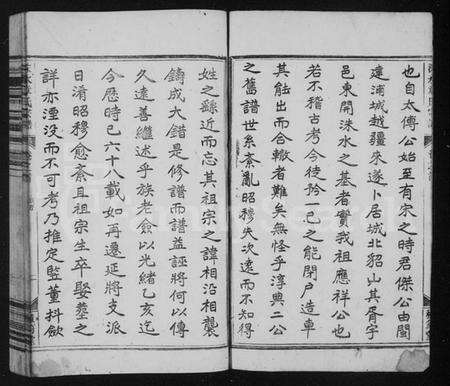 也自太傅公始至有宋之時君傑公由閩
遷浦城越疆來遂卜居城北貂山其胥宇
邑東開洙水之基者實我祖應祥公也
若不稽古考今徒矜一己之能閉户造車
其能出而合轍者難矣無怪乎淳典二公
之舊譜世系紊亂昭穆失次遠而不知得
姓之繇近而忘其祖宗之諱相沿相襲
鑄成大錯是修譜而譜益誣將何以傳
久遠善繼述乎族老僉以光緒乙亥迄
今歷時已六十八載如再遷延將支派
日淆昭穆愈紊且祖宗生卒娶塟之
詳亦湮没而不可考乃推定監董抖歛